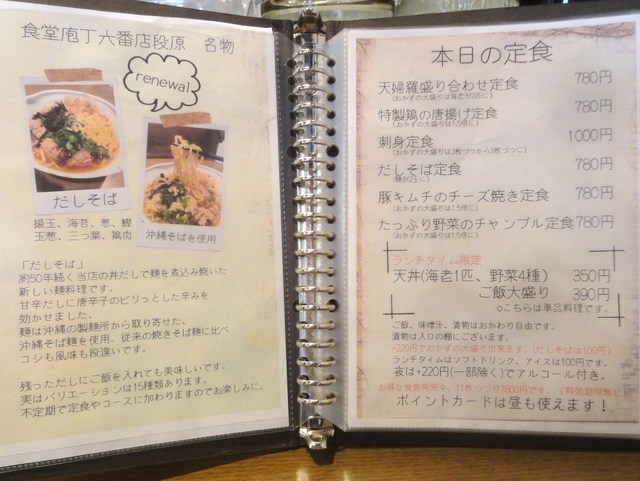 食堂庖丁六番店段原　名物
renewal
だしそば
沖縄そばを使用
揚玉、海苔、葱、鰹
玉葱、三つ葉、鶏肉
「だしそば」
約50年続く当店の丼だしで麺を煮込み焼いた
新しい麺料理です。
甘辛だしに唐辛子のピリっとした辛みを
効かせました。
麺は沖縄の製麺所から取り寄せた、
沖縄そば麺を使用。従来の焼きそば麺に比べ
コシも風味も段違いです。
残っただしにご飯を入れても美味しいです。
実はバリエーションは15種類あります。
不定期で定食やコースに加わりますのでお楽しみに。
本日の定食
天婦羅盛り合わせ定食 780円
(おかずの大盛りは海老が2匹に)
特製鶏の唐揚げ定食 780円
(おかずの大盛りは1.5倍に)
刺身定食 1000円
(おかずの大盛りは2枚づつから3枚づつに)
だしそば定食 780円
(麺が2玉に)
豚キムチのチーズ焼き定食 780円
(おかずの大盛りは1.5倍に)
たっぷり野菜のチャンプル定食 780円
(おかずの大盛りは1.5倍に)
ランチタイム限定
天丼(海老1匹、野菜4種) 350円
ご飯大盛り 390円
○こちらは単品料理です。
ご飯、味噌汁、漬物はおかわり自由です。
漬物は入口の棚にございます。
+220円でおかずの大盛り出来ます。(だしそばは100円)
ランチタイムはソフトドリンク、アイスは100円です。
夜は+220円(一部除く)でアルコール付き。
お得な食券発売中、11枚つづり7800円です。(有効期限無し)
ポイントカードは昼も使えます！